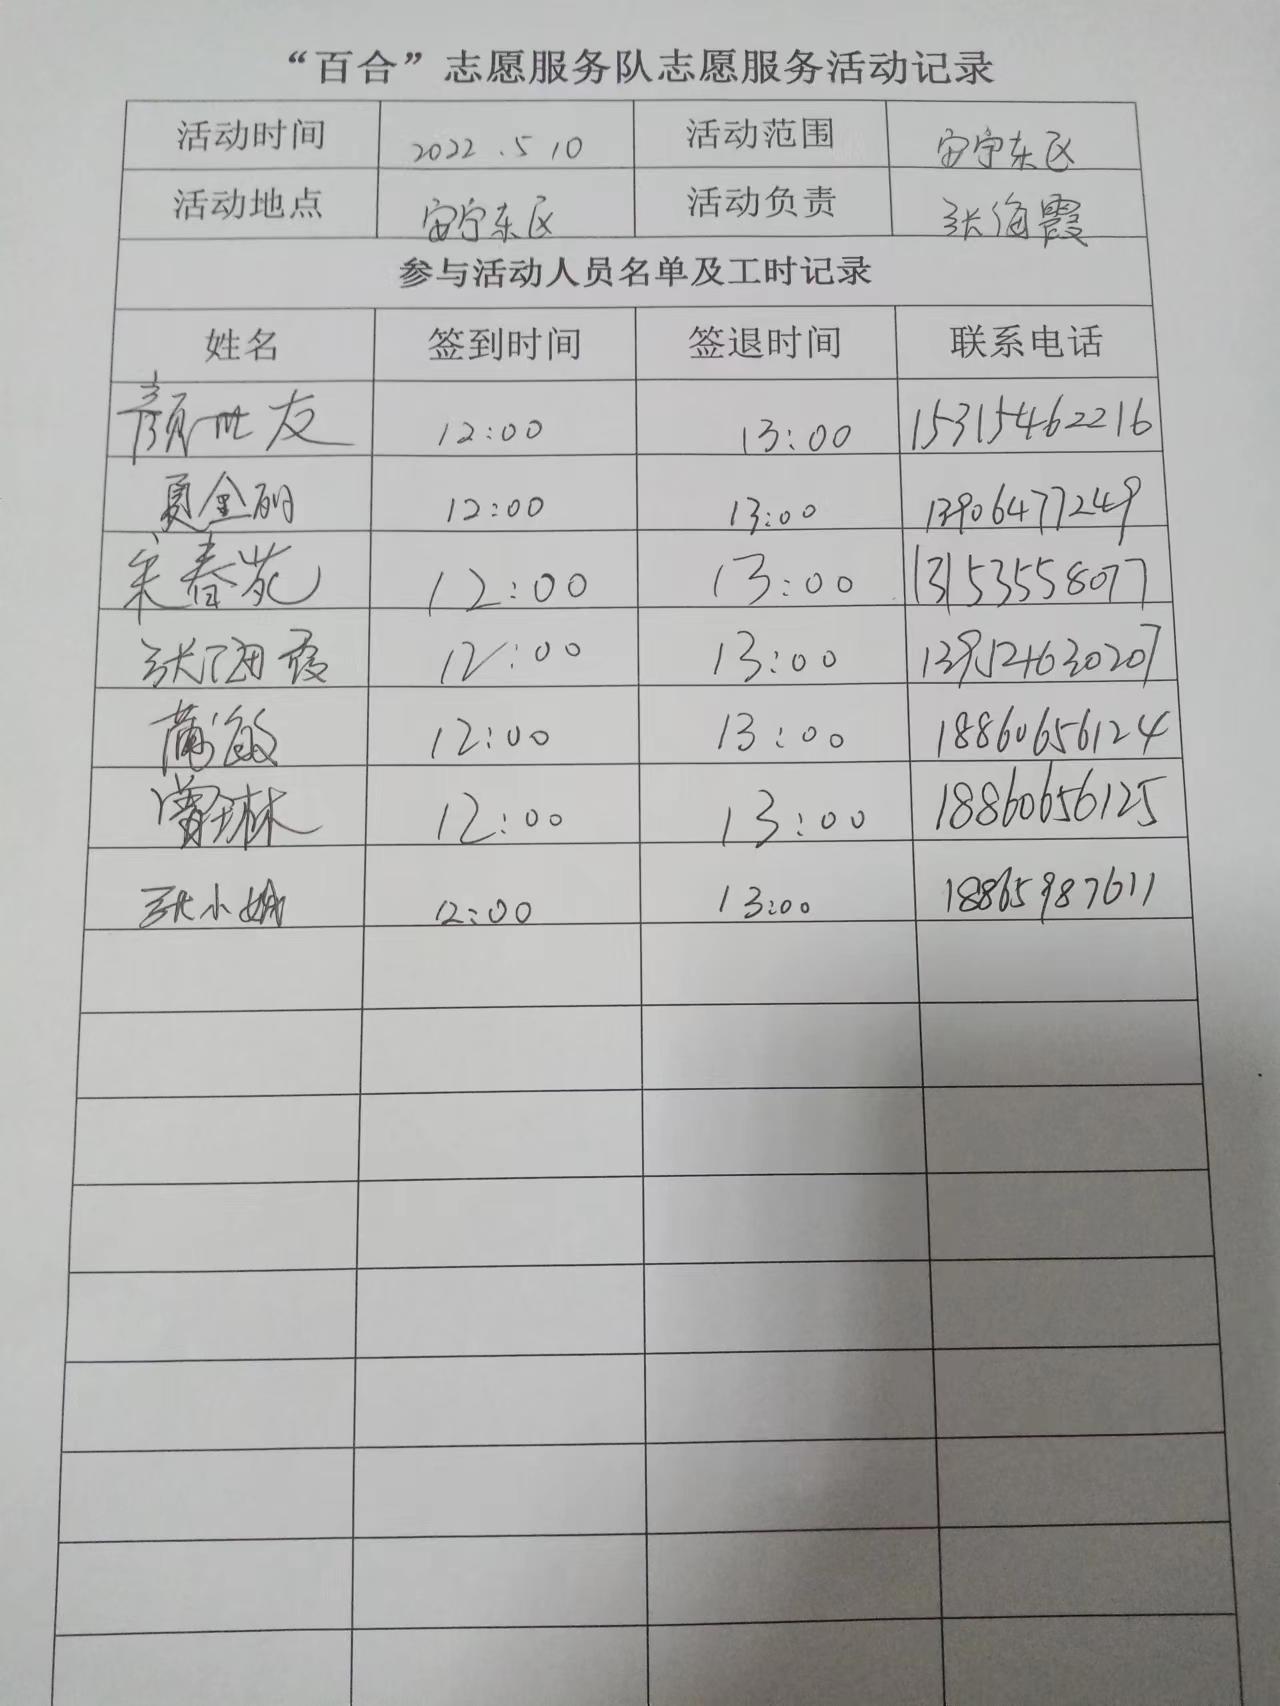 “百合”志愿服务队志愿服务活动记录
活动时间 2022.5 10 活动范围 安宁东区
活动地点 安宁东区 活动负责 张海霞
参与活动人员名单及工时记录
姓名 签到时间 签退时间 联系电话
颜世友 12:00 13:00 15315462216
夏金丽 12:00 13:00 13906477249
宋春苑 12:00 13:00 13153558077
张海霞 12:00 13:00 139524630207
蒲敏 12:00 13:00 18860656124
曾琳 12:00 13:00 18860656125
张小娥 12:00 13:00 18865987611